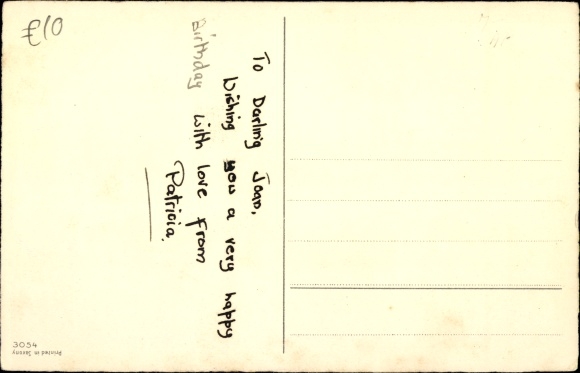 £10
To Darling Joan,
Wishing you a very happy
Birthday with love from
Patricia.
3054
Printed in Saxony